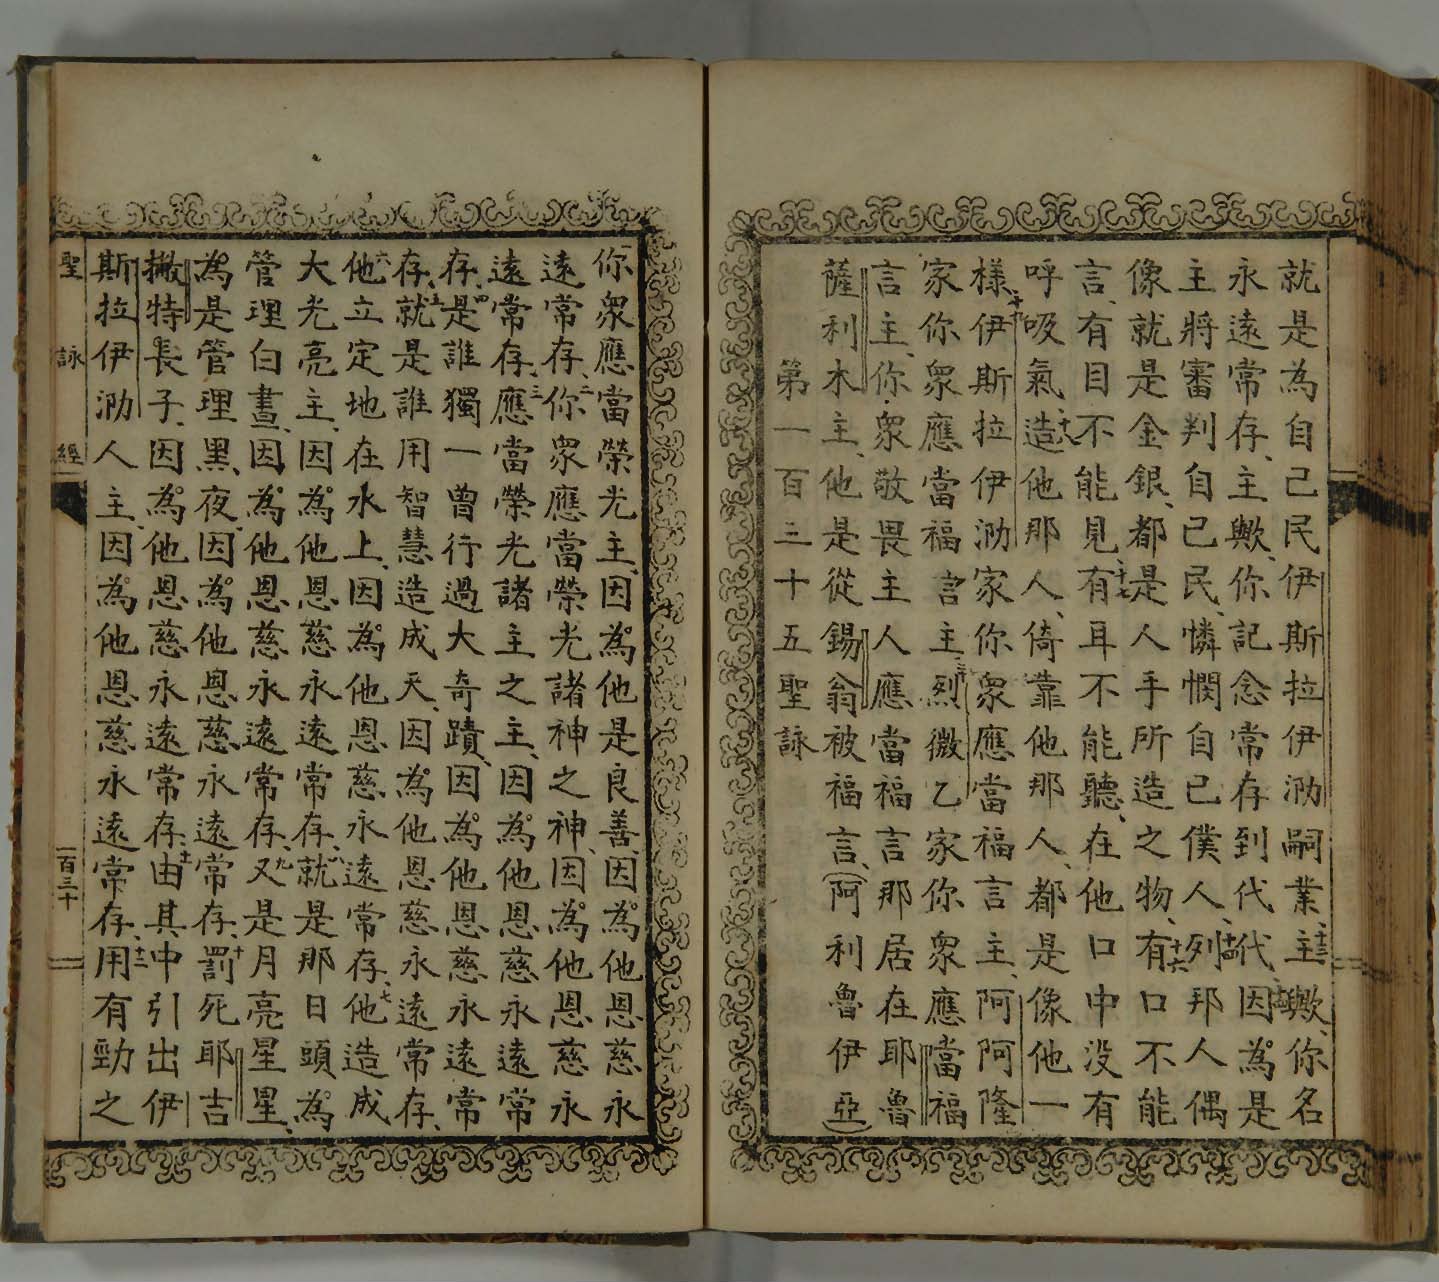 就是為自己民伊斯拉伊泐嗣業、十三主歟、你名
永遠常存、主歟、你記念常存到代代、十四因為是
主將審判自己民、憐憫自己僕人、十五列邦人偶
像就是金銀、都是人手所造之物、十六有口不能
言、有目不能見、十七有耳不能聽、在他口中没有
呼吸氣、十八造他那人、倚靠他那人、都是像他一
樣、十九伊斯拉伊泐家你衆應當福言主、阿阿隆
家你衆應當福言主、二十列微乙家你衆應當福
言主、你衆敬畏主人應當福言那居在耶魯
薩利木主、他是從錫翁被福言、(阿利魯伊亞)
第一百三十五聖詠
一你衆應當榮光主、因為他是良善、因為他恩慈永
遠常存、二你衆應當榮光諸神之神、因為他恩慈永
遠常存、三應當榮光諸主之主、因為他恩慈永遠常
存、四是誰獨一曾行過大奇蹟、因為他恩慈永遠常
存、五就是誰用智慧造成天、因為他恩慈永遠常存、
六他立定地在水上、因為他恩慈永遠常存、七他造成
大光亮主、因為他恩慈永遠常存、八就是那日頭為
管理白晝、因為他恩慈永遠常存、九又是月亮星星、
為是管理黑夜、因為他恩慈永遠常存、十罰死耶吉
撇特長子、因為他恩慈永遠常存、十一由其中引出伊
斯拉伊泐人主、因為他恩慈永遠常存、十二用有勁之
聖詠經
一百三十